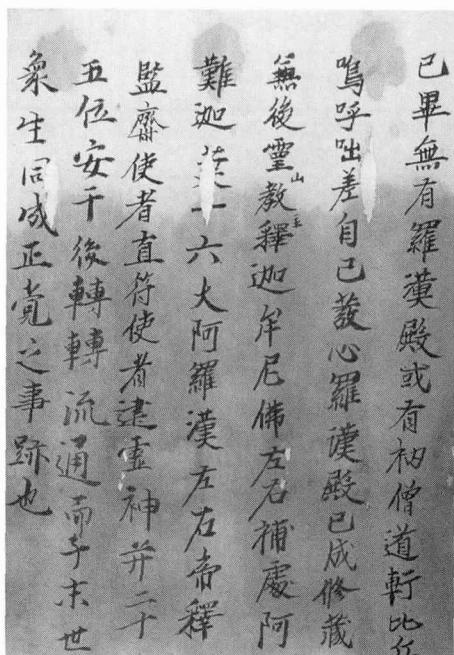 已畢無有羅漢殿或有衲僧道軒比丘
嗚呼咄差自己發心羅漢殿已成修藏
無後靈山教主釋迦牟尼佛左右補處阿
難迦葉十六大阿羅漢左右帝釋
監齋使者直符使者逮霊神并二十
五位安于後轉轉流通而于末世
衆生同成正覚之事跡也